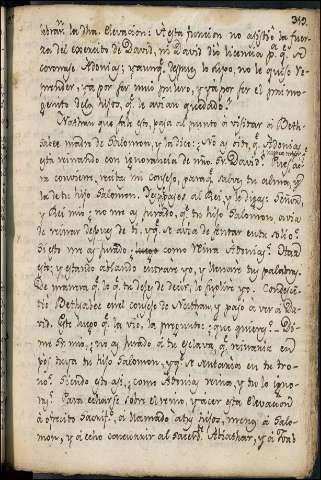 319.
ebrar la dha. elevacion: A esta funcion no asistio la fuer
za del exercito de David, ni David dio licencia pa. q. se
coronase Adonias; y aunq. despues lo supo, no le quiso re-
prender, ya por ser mui su hero, y ya por ser el pri mo-
genito de los hijos, q. le avian quedado.
Nathan que supo esto, pasa al punto à visitar à Beth-
sabee madre de Salomon, y la dice: No as oido, q. Adonias
esta reinando con ignorancia de nro. Sr. David? Pues, ao-
ra conviene, recibas mi consejo, paraq. salves tu alma, y
la de tu hijo Salomon. Te pasas al Rei, y le digas: Señor,
y Rei mio; no me as jurado, q. tu hijo Salomon avia
de reinar despues de ti, y q. se avia de sentar en tu solio?
Si esto me as jurado, como reina Adonias? Otra
esto; y estando hablando, entrare yo, y llenare tus palabras.
De manera q. lo q. tu dejes de decir, lo suplire yo. Condescen-
dio Bethsabee en el consejo de Nathan, y pasò à ver à Da-
vid. Este luego q. la vio, la pregunta: que quieres? Di-
me Sr. mio; no as jurado à tu esclava, q. reinaria en
pos de ti tu hijo Salomon, y q. se sentaria en tu tro-
no? Siendo esto asi, como Adonias reina, y tu lo igno-
ras? Para echarse sobre el reino, y hacer esta elevacion
à ofrecido sacrif.s, à llamado à tus hijos, menos à Salo-
mon, y à echo concurrir al sacerd. Abiathar, y à Joab